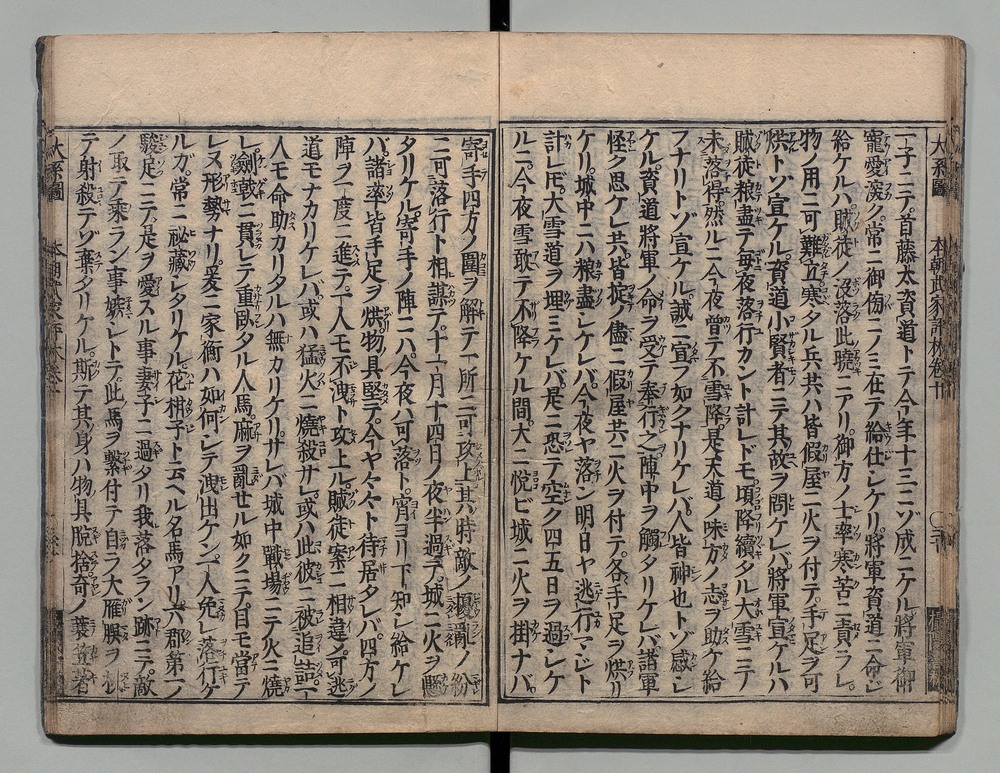 一子ニテ首藤太資道トテ今年十三ニゾ成ニケル將軍御
寵愛深ク常ニ御傍ニノミ在テ給仕シケリ將軍資道ニ命ジ
給ケルハ賊徒ノ沒落此曉ニアリ御方ノ士率寒苦ニ責ラレ
物ノ用ニ可難立寒タル兵共ハ皆假屋ニ火ヲ付テ手足ヲ可
烘トゾ宣ケル資道小賢者ニテ其故ヲ問ケレバ將軍宣ケルハ
賊徒粮盡テ毎夜落行カント計レドモ頃降續タル大雪ニテ
未落得然ルニ今夜曽テ不雪降是天道ノ味方ノ志ヲ助ケ給
フナリトゾ宣ケル誠ニ宜フ如クナリケレバ人皆神也トゾ感シ
ケル資道將軍ノ命ヲ受テ奉行之陣中ヲ觸タリケレバ諸軍
怪ク思ケレ共皆掟ノ儘ニ假屋共ニ火ヲ付テ各手足ヲ烘リ
ケリ城中ニハ粮盡シケレバ今夜ヤ落ン明日ヤ逃行マジト
計レドモ大雪道ヲ埋ミケレバ是ニ恐テ空ク四五日ヲ過シケ
ルニ今夜雪敢テ不降ケル間大ニ悦ビ城ニ火ヲ掛ナバ
大系圖 本朝武家評林卷十
寄手四方ノ圍ヲ解テ一所ニ可攻上其時敵ノ擾亂ノ紛
ニ可落行ト相謀テ十一月十四日ノ夜半過テ城ニ火ヲ懸
タリケル寄手ノ陣ニハ今夜ハ可落ト宵ヨリ下知シ給ケレ
バ諸率皆手足ヲ烘物具堅テ今ヤ々々ト待居タレバ四方ノ
陣ヲ一度ニ進テ一人モ不洩ト攻上ル賊徒案ニ相違シ可逃
道モナカリケレバ或ハ猛火ニ燒殺サレ或ハ此彼ニ被追詰一
人モ命助カリタルハ無カリケリサレバ城中戰場ニテ火ニ燒
レ劔戟ニ貫レテ重臥タル人馬麻ヲ亂セル如クニテ目モ當テ
レヌ形勢ナリ爰ニ家衡ハ如何シテ洩出ケン一人免レ落行ケ
ルガ常ニ祕藏シタリケル花柑子ト云ヘル名馬アリ六郡第一ノ
駿足ニテ是ヲ愛スル事妻子ニ過タリ我落タラン跡ニテ敵
ノ取テ乘ラン事嫉シトテ此馬ヲ繋付テ自ラ大雁股ヲ
テ射殺テゾ棄タリケル斯テ其身ハ物具脱捨奇ノ蓑笠著
大系圖 本朝武家評林卷十